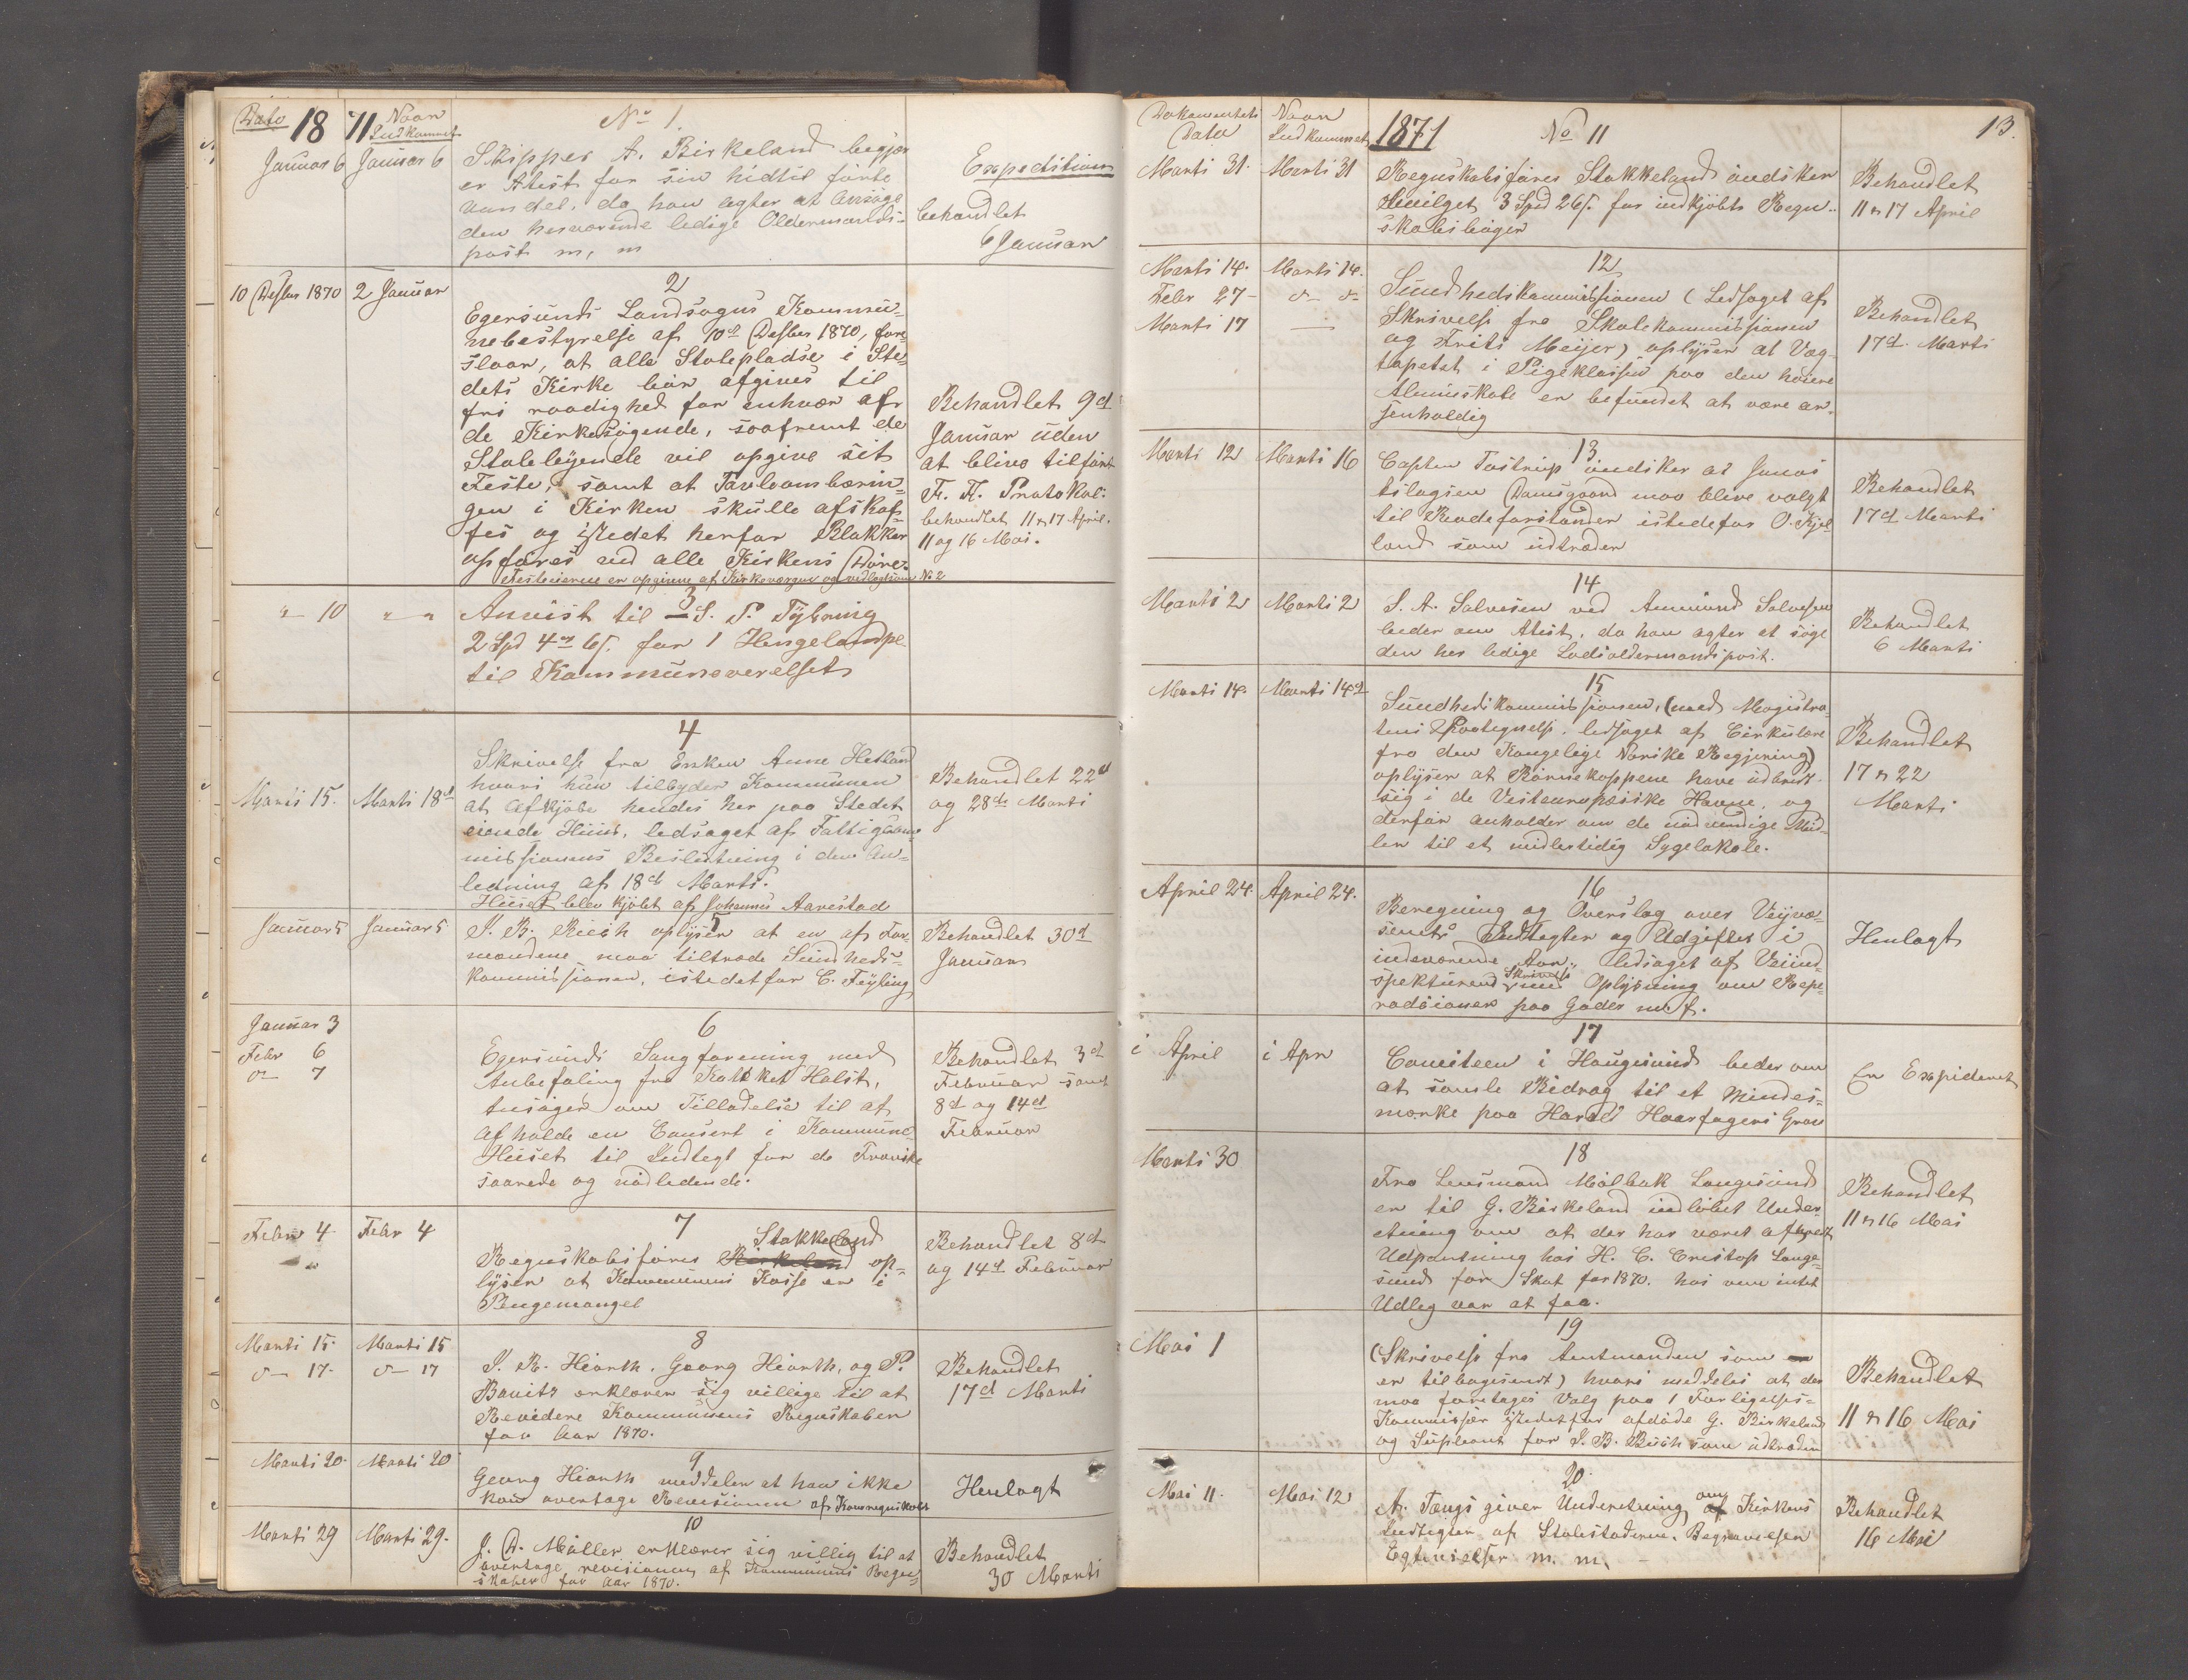 Dato 18 71 Naar Indkommet
No 1.
Januar 6 Januar 6
Skipper A. Birkeland begjær
er Atest for sin hidtil førte
vandel, da han agter at ansøge
den herværende ledige Oldermands-
post m, m
Expedition
behandlet
6 Januar
10 Desbr 1870 2 Januar
2
Egersunds Landsogns Kommu-
nebestyrelse af 10d Desber 1870, fore-
slaar, at alle Stolepladse i Ste-
dets Kirke bør afgives til
fri raadighed for enhver af
de Kirkesøgende, saafremt de
Stoleleyende vil opgive sit
Feste, samt at Tavleombærin-
gen i Kirken skulle afskaf-
fes og istedet herfor Blokker
opføres ved alle Kirkens Døre.
Festeeierne er opgivne af Kirkeværgen og vedlagt som No 2
Behandlet 9d
Januar uden
at blive tilført
F. F. Protokol:
behandlet 11 & 17 April.
11 og 16 Mai.
" 10 " "
3
Anvist til S. P. Tybring
2 Spd 4 65. for 1 Hengelampe
til Kommuneverelset
4
Marti 15. Marti 18d
Skrivelse fra Enken Anne Hetland
hvori hun tilbyder Kommunen
at afkjøbe hendes her paa Stedet
eiende Huus, ledsaget af Fattigkom-
missionens Beslutning i den An-
ledning af 18d Marti.
Huset blev kjøbt af Johannes Aarestad
Behandlet 22d
og 28de Marti
Januar 5 Januar 5
5
J. B. Puch oplyser at en af For-
mændene maa tiltræde Sundheds-
kommissionen, istedetfor C. Feyling
Behandlet 30d
Januar
Januar 3
Febr 6
do 7
6
Egersunds Sangforening med
Anbefaling fra Holst,
ansøger om Tilladelse til at
afholde en Consert i Kommune-
Huset til Indtegt for de Franske
saarede og nødledende.
Behandlet 3d
Februar samt
8d og 14d
Februar
Febr 4 Febr 4
7
Stokkeland
Regnskabsfører Birkeland op-
lyser at Kommunens Kasse er i
Pengemangel
Behandlet 8d
og 14d Februar
Marti 15. Marti 15
do 17. do 17
8
J. R. Hiorth, Georg Hiorth, og P.
Bauitz erklærer sig villige til at
Revidere Kommunens Regnskaber
for Aar 1870.
Behandlet
17d Marti
Marti 20. Marti 20
9
Georg Hiorth meddeler at han ikke
kan overtage Revisionen af Komregnskabet
Henlagt
Marti 29 Marti 29.
10
J. D. Møller erklærer sig villig til at
overtage revisionen af Kommunens Regn-
skaber for aar 1870.
Behandlet
30 Marti
Dokumentets Dato Naar Indkommet 1871 No 11 13.
Marti 31. Marti 31
Regnskabsfører Stokkeland ønsker
bevilget 3 Spd 26/. for indkjøbte Regn-
skabsbøger
Behandlet
11 & 17 April
12
Marti 14. Marti 14.
Febr 27 do do
Marti 17
Sundhedskommissionen (Ledsaget af
Skrivelse fra Skolekommissionen
og Frits Meijer) oplyser at Væg-
tapetet i Pigeklassen paa den høiere
Almueskole er befundet at være ar-
senholdig
Behandlet
17d. Marti
Marti 12 Marti 16
13
Capten Tostrup ønsker at Jonas
Damsgaard maa blive valgt
til Rodeforstander istedefor O. Kjel
land som udtræder
Behandlet
17d Marti
Marti 2 Marti 2
14
S. A. Salvesen ved Ammund Salvesen
beder om Atest, da han agter at søge
den her ledige Lodsoldermandspost.
Behandlet
6 Marti
Marti 14. Marti 14d
15
Sundhedskommissionen, (med Magistra-
tens Paategnelse, ledsaget af Cirkulære
fra den Kongelige Norske Regjering)
oplyser at Børnekoppene have udbredt
sig i de Vesteuropæiske Havne, og
derfor anholder om de nødvendige Mid-
ler til et midlertidig Sygelokale.
Behandlet
17 & 22
Marti
April 24. April 24.
16
Beregning og Overslag over Veivæ-
senets Indtegter og Udgifter i
indeværende Aar, ledsaget af Veiind-
spekteurens Skrivelse med Oplysning om Repe-
rationer paa Gader m. f.
Henlagt
i April i Apr
17
Comiteen i Haugesund beder om
at samle Bidrag til et Mindes-
mærke paa Harald Haarfagers Grav
Er Expideret
Marti 30
18
Fra Lensmand Mølbak Langesund
er til G. Birkeland indløbet Under-
etning om at der har været afhvert
Udpantning hos H. C. Cristop Lange-
sund for Skat for 1870. hos vem intet
Udleg var at faa.
Behandlet
11 & 16 Mai
Mai 1
19
(Skrivelse fra Amtmanden som
er tilbagesendt) hvori meddeles at der
maa foretages Valg paa 1 Forligelses-
Kommissær istedetfor afdøde G. Birkeland
og Supleant for J. B. Puch som udtræder
Behandlet
11 & 16 Mai
Mai 11. Mai 12
20.
A. Tængs giver Underetning om Kirkens
Indtegter af Stolestaderne, Begravelser
Egtevielser m. m.
Behandlet
16 Mai